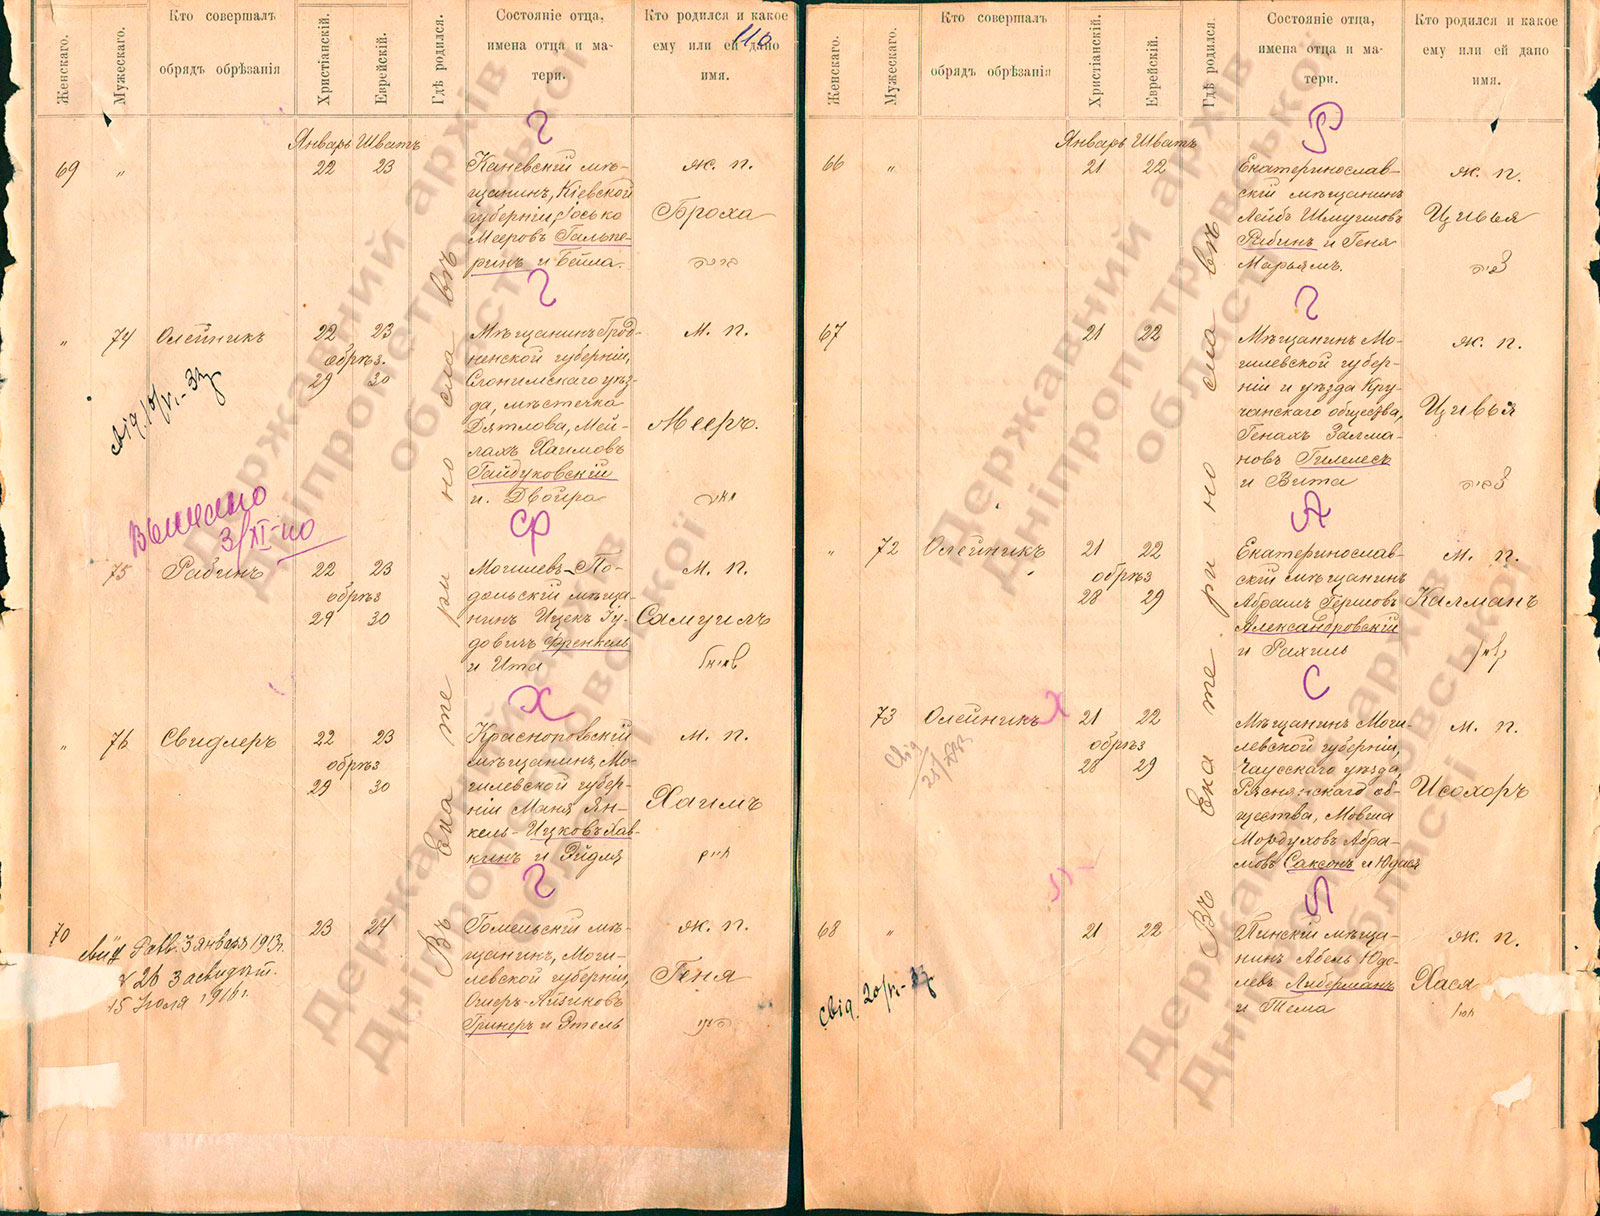 Женскаго.
Мужескаго.
Кто совершалъ
обрядъ обрѣзанія
Христіанскій.
Еврейскій.
Гдѣ родился.
Состояніе отца,
имена отца и ма-
тери.
Кто родился и какое
ему или ей дано
имя.
110
Январь Шватъ
69 „ 22 23
Каневскій мѣ-
щанинъ, Кіевской
губерніи, Іосько
Мееровъ Гальпе-
ринъ и Бейла.
ж. п.
Броха
„ 74 Олейникъ
22 23
обрѣз.
29 30
Мѣщанинъ Грод-
ненской губерніи,
Слонимскаго уѣз-
да, мѣстечка
Дятлова, Мей-
лахъ Хаимовъ
Гайдуковскій
и Двойра
м. п.
Мееръ.
75 Рабинъ
22 23
обрѣз
29 30
Могилевъ-По-
дольскій мѣща-
нинъ Ицекъ Іу-
довичъ Френкель
и Ита
м. п.
Самуилъ
„ 76 Свидлеръ
22 23
обрѣз
29 30
Краснопольскій
мѣщанинъ, Мо-
гилевской губер-
ніи Маня Ян-
кель-Ицковъ Хав-
кинъ и Эйдля
м. п.
Хаимъ
חיים
70
23 24
Гомельскій мѣ-
щанинъ, Моги-
левской губерніи,
Гринеръ и Этель
ж. п.
Геня
3 января 1913 г.
15 Іюля 1916 г.
Въ Екатеринославѣ
Женскаго.
Мужескаго.
Кто совершалъ
обрядъ обрѣзанія
Христіанскій.
Еврейскій.
Гдѣ родился.
Состояніе отца,
имена отца и ма-
тери.
Кто родился и какое
ему или ей дано
имя.
Январь Шватъ
66 „ 21 22
Екатеринослав-
скій мѣщанинъ
Лейбъ Шмуиловъ
Рабинъ и Геня
Марьямъ.
ж. п.
Цивья
67
21 22
Мѣщанинъ Мо-
гилевской губер-
ніи и уѣзда Кру-
чанскаго общества,
Генахъ Залма-
новъ Гилелесъ
и Вита
ж. п.
Цивья
„ 72 Олейникъ
21 22
обрѣз
28 29
Екатеринослав-
скій мѣщанинъ
Абрамъ Гершовъ
Александровскій
и Рахиль
м. п.
Калманъ
73 Олейникъ
21 22
обрѣз
28 29
Мѣщанинъ Моги-
левской губерніи,
Чаусскаго уѣзда,
Ряснянскаго об-
щества, Мовша
Мордуховъ Абра-
мовъ Саксонъ и Юдася
м. п.
Исохоръ
68 „ 21 22
Пинскій мѣща-
нинъ Абель Юде-
левъ Либерманъ
и Тема
ж. п.
Хася
Въ Екатеринославѣ
Державний архів
Дніпропетровської
області